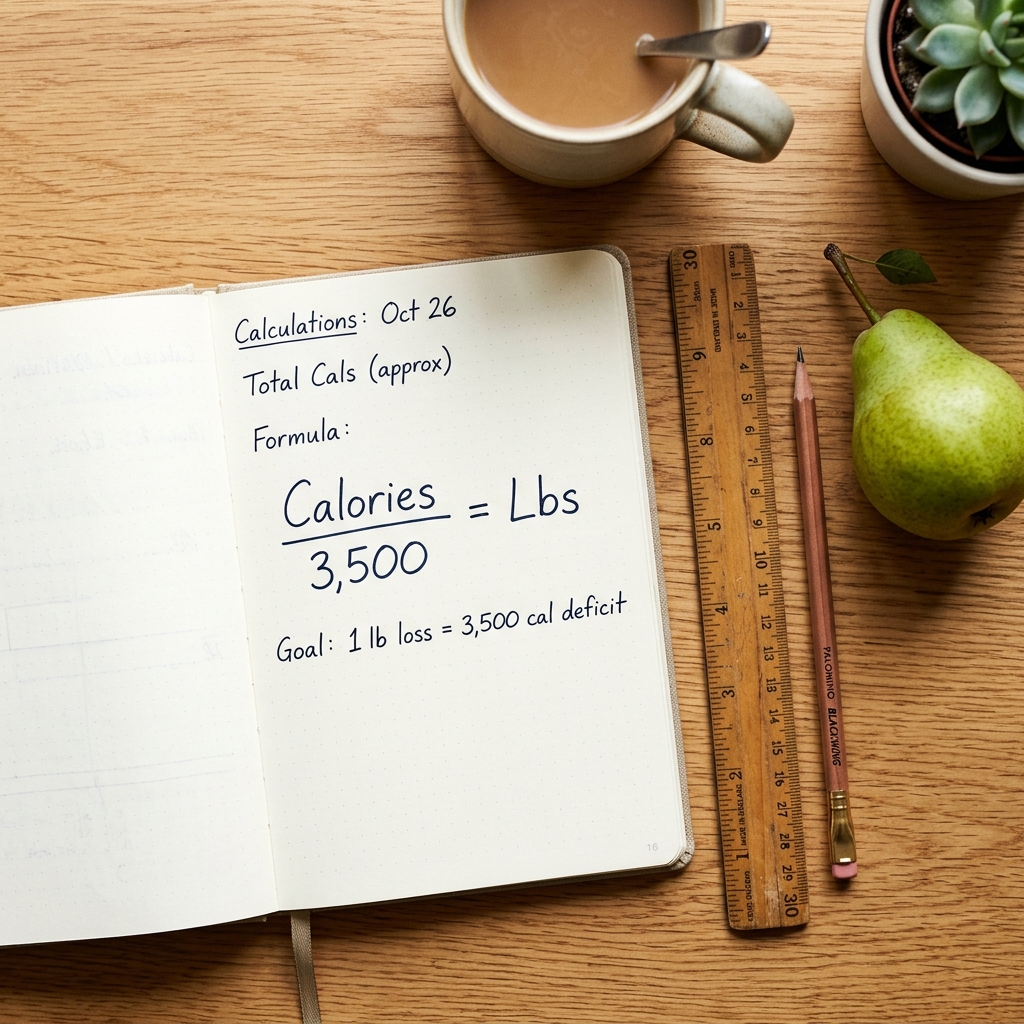 Calculations: Oct 26
Total Cals (approx)
Formula:
Calories
3,500
= Lbs
Goal: 1 lb loss = 3,500 cal deficit
16
PALOMINO BLACKWING